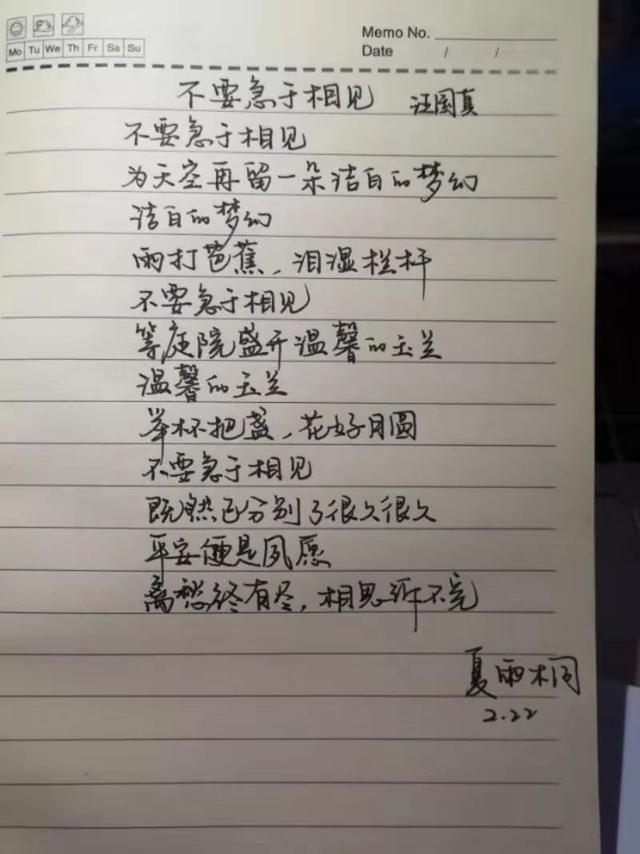 Memo No.
Mo Tu We Th Fr Sa Su
Date / /
不要急于相见 汪国真
不要急于相见
为天空再留一朵洁白的梦幻
洁白的梦幻
雨打芭蕉，泪湿栏杆
不要急于相见
等庭院盛开温馨的玉兰
温馨的玉兰
举杯把盏，花好月圆
不要急于相见
既然已分别了很久很久
平安便是夙愿
离愁终有尽，相思诉不完
夏雨桐
2.22